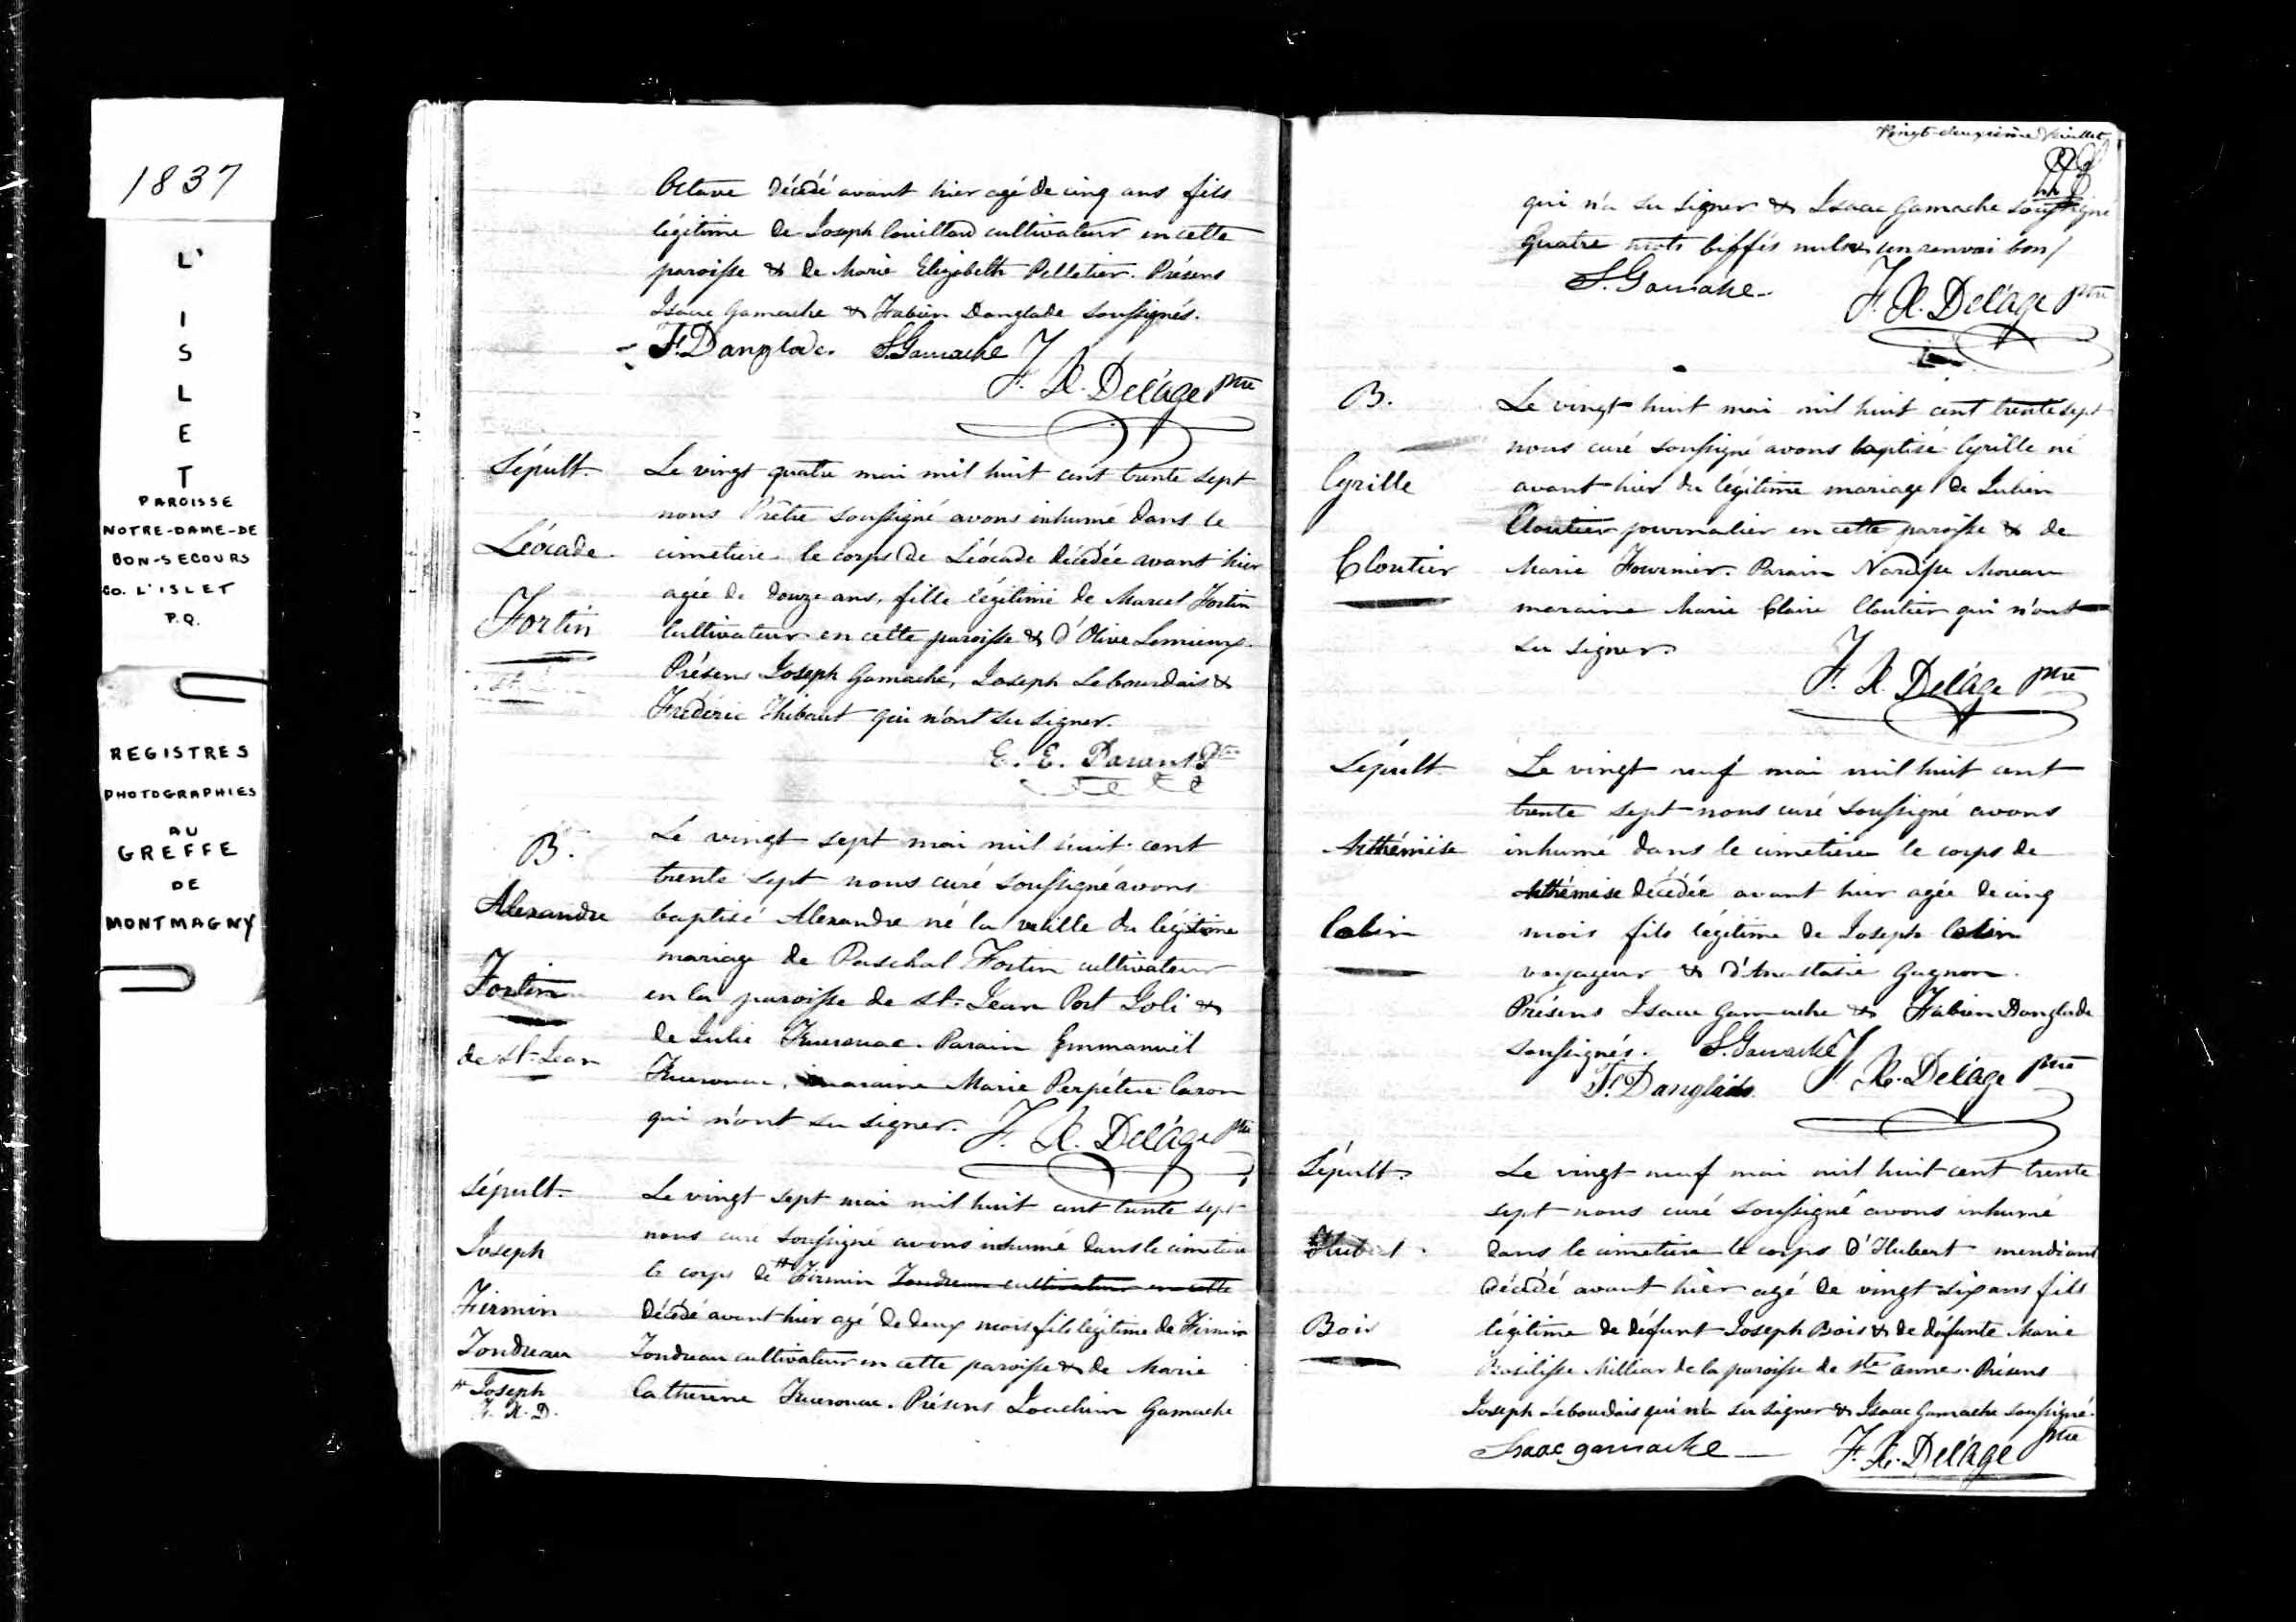 1837
L'
I
S
L
E
T
PAROISSE
NOTRE-DAME-DE
BON-SECOURS
CO. L'ISLET
P.Q.
REGISTRES
PHOTOGRAPHIES
AU
GREFFE
DE
MONTMAGNY
Octave décédé avant hier agé de cinq ans fils
légitime de Joseph Couillard cultivateur en cette
paroisse & de Marie Elizabeth Pelletier. Présens
Isaac Gamache & Fabien Danglade soussignés.
F. Danglade. I. Gamache
F. X. Delâge ptre
Sépult.
Léocade
Fortin
Le vingt quatre mai mil huit cent trente sept
nous Prêtre soussigné avons inhumé dans le
cimetiere le corps de Léocade décédée avant hier
agée de douze ans, fille légitime de Marcel Fortin
Cultivateur en cette paroisse & d'Olive Lemieux.
Présens Joseph Gamache, Joseph Lebourdais &
Fréderic Thibaut qui n'ont su signer.
E. E. Parant Ptre
B.
Alexandre
Fortin
de St. Jean
Le vingt sept mai mil huit cent
trente sept nous curé soussigné avons
baptisé Alexandre né la veille du légitime
mariage de Paschal Fortin cultivateur
en la paroisse de St. Jean Port Joli &
de Julie Kuerouac. Parain Emmanuël
Kuerouac, maraine Marie Perpétue Caron
qui n'ont su signer. F. X. Delâge ptre
Sépult.
Joseph
Firmin
Tondreau
# Joseph
F. X. D.
Le vingt sept mai mil huit cent trente sept
nous curé soussigné avons inhumé dans le cimetiere
le corps de # Firmin Tondreau cultivateur en cette
décédé avant hier agé de deux mois fils légitime de Firmin
Tondreau cultivateur en cette paroisse & de Marie
Catherine Kuerouac. Présens Joachim Gamache
Vingt-deuxième feuillet
qui n'a su signer & Isaac Gamache soussigné
Quatre mots biffés nuls & un renvoi bon /
I. Gamache F. X. Delâge ptre
B.
Cyrille
Cloutier
Le vingt huit mai mil huit cent trente sept
nous curé soussigné avons baptisé Cyrille né
avant hier du légitime mariage de Julien
Cloutier journalier en cette paroisse & de
Marie Fournier. Parain Narcisse Moreau
maraine Marie Claire Cloutier qui n'ont
su signer.
F. X. Delâge ptre
Sépult
Arthémise
Colin
Le vingt neuf mai mil huit cent
trente sept nous curé soussigné avons
inhumé dans le cimetiere le corps de
Arthémise décédée avant hier agée de cinq
mois fils légitime de Joseph Colin
voyageur & d'Anastasie Gagnon.
Présens Isaac Gamache & Fabien Danglade
soussignés. I. Gamache F. X. Delâge ptre
F. Danglade
Sépult.
Hubert
Bois
Le vingt neuf mai mil huit cent trente
sept nous curé soussigné avons inhumé
dans le cimetiere le corps d'Hubert mendiant
décédé avant hier agé de vingt six ans fils
légitime de défunt Joseph Bois & de défunte Marie
Basilisse Milliar de la paroisse de Ste Anne. Présens
Joseph Lebourdais qui n'a su signer & Isaac Gamache soussigné.
Isaac gamache F. X. Delâge ptre